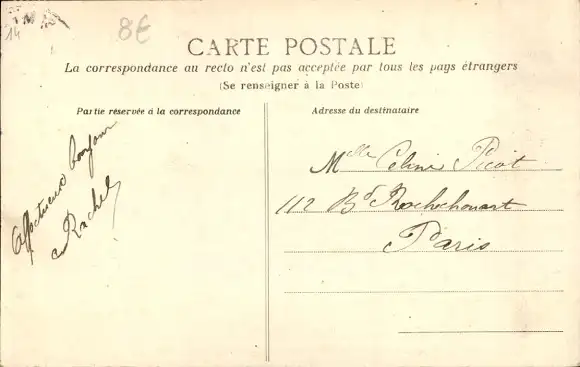 14
8€
CARTE POSTALE
La correspondance au recto n'est pas acceptée par tous les pays étrangers
(Se renseigner à la Poste)
Partie réservée à la correspondance
Affectueux bonjour
Rachel
Adresse du destinataire
Mlle Celine Picot
112 Bd Rochechouart
Paris